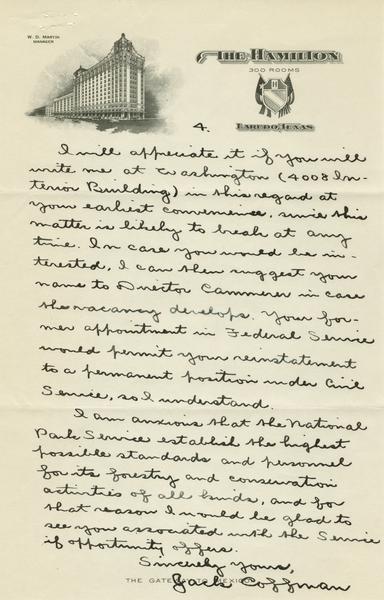 W. D. MARTIN
MANAGER
THE HAMILTON
300 ROOMS
H
LAREDO, TEXAS
4.
I will appreciate it if you will
write me at Washington (4008 In-
terior Building) in this regard at
your earliest convenience, since this
matter is likely to break at any
time. In case you would be in-
terested, I can then suggest your
name to Director Cammerer in case
the vacancy develops. Your for-
mer appointment in Federal Service
would permit your reinstatement
to a permanent position under Civil
Service, so I understand.
I am anxious that the National
Park Service establish the highest
possible standards and personnel
for its forestry and conservation
activities of all kinds, and for
that reason I would be glad to
see you associated with the Service
if opportunity offers.
Sincerely yours,
THE GATEWAY TO MEXICO
Jack Coffman